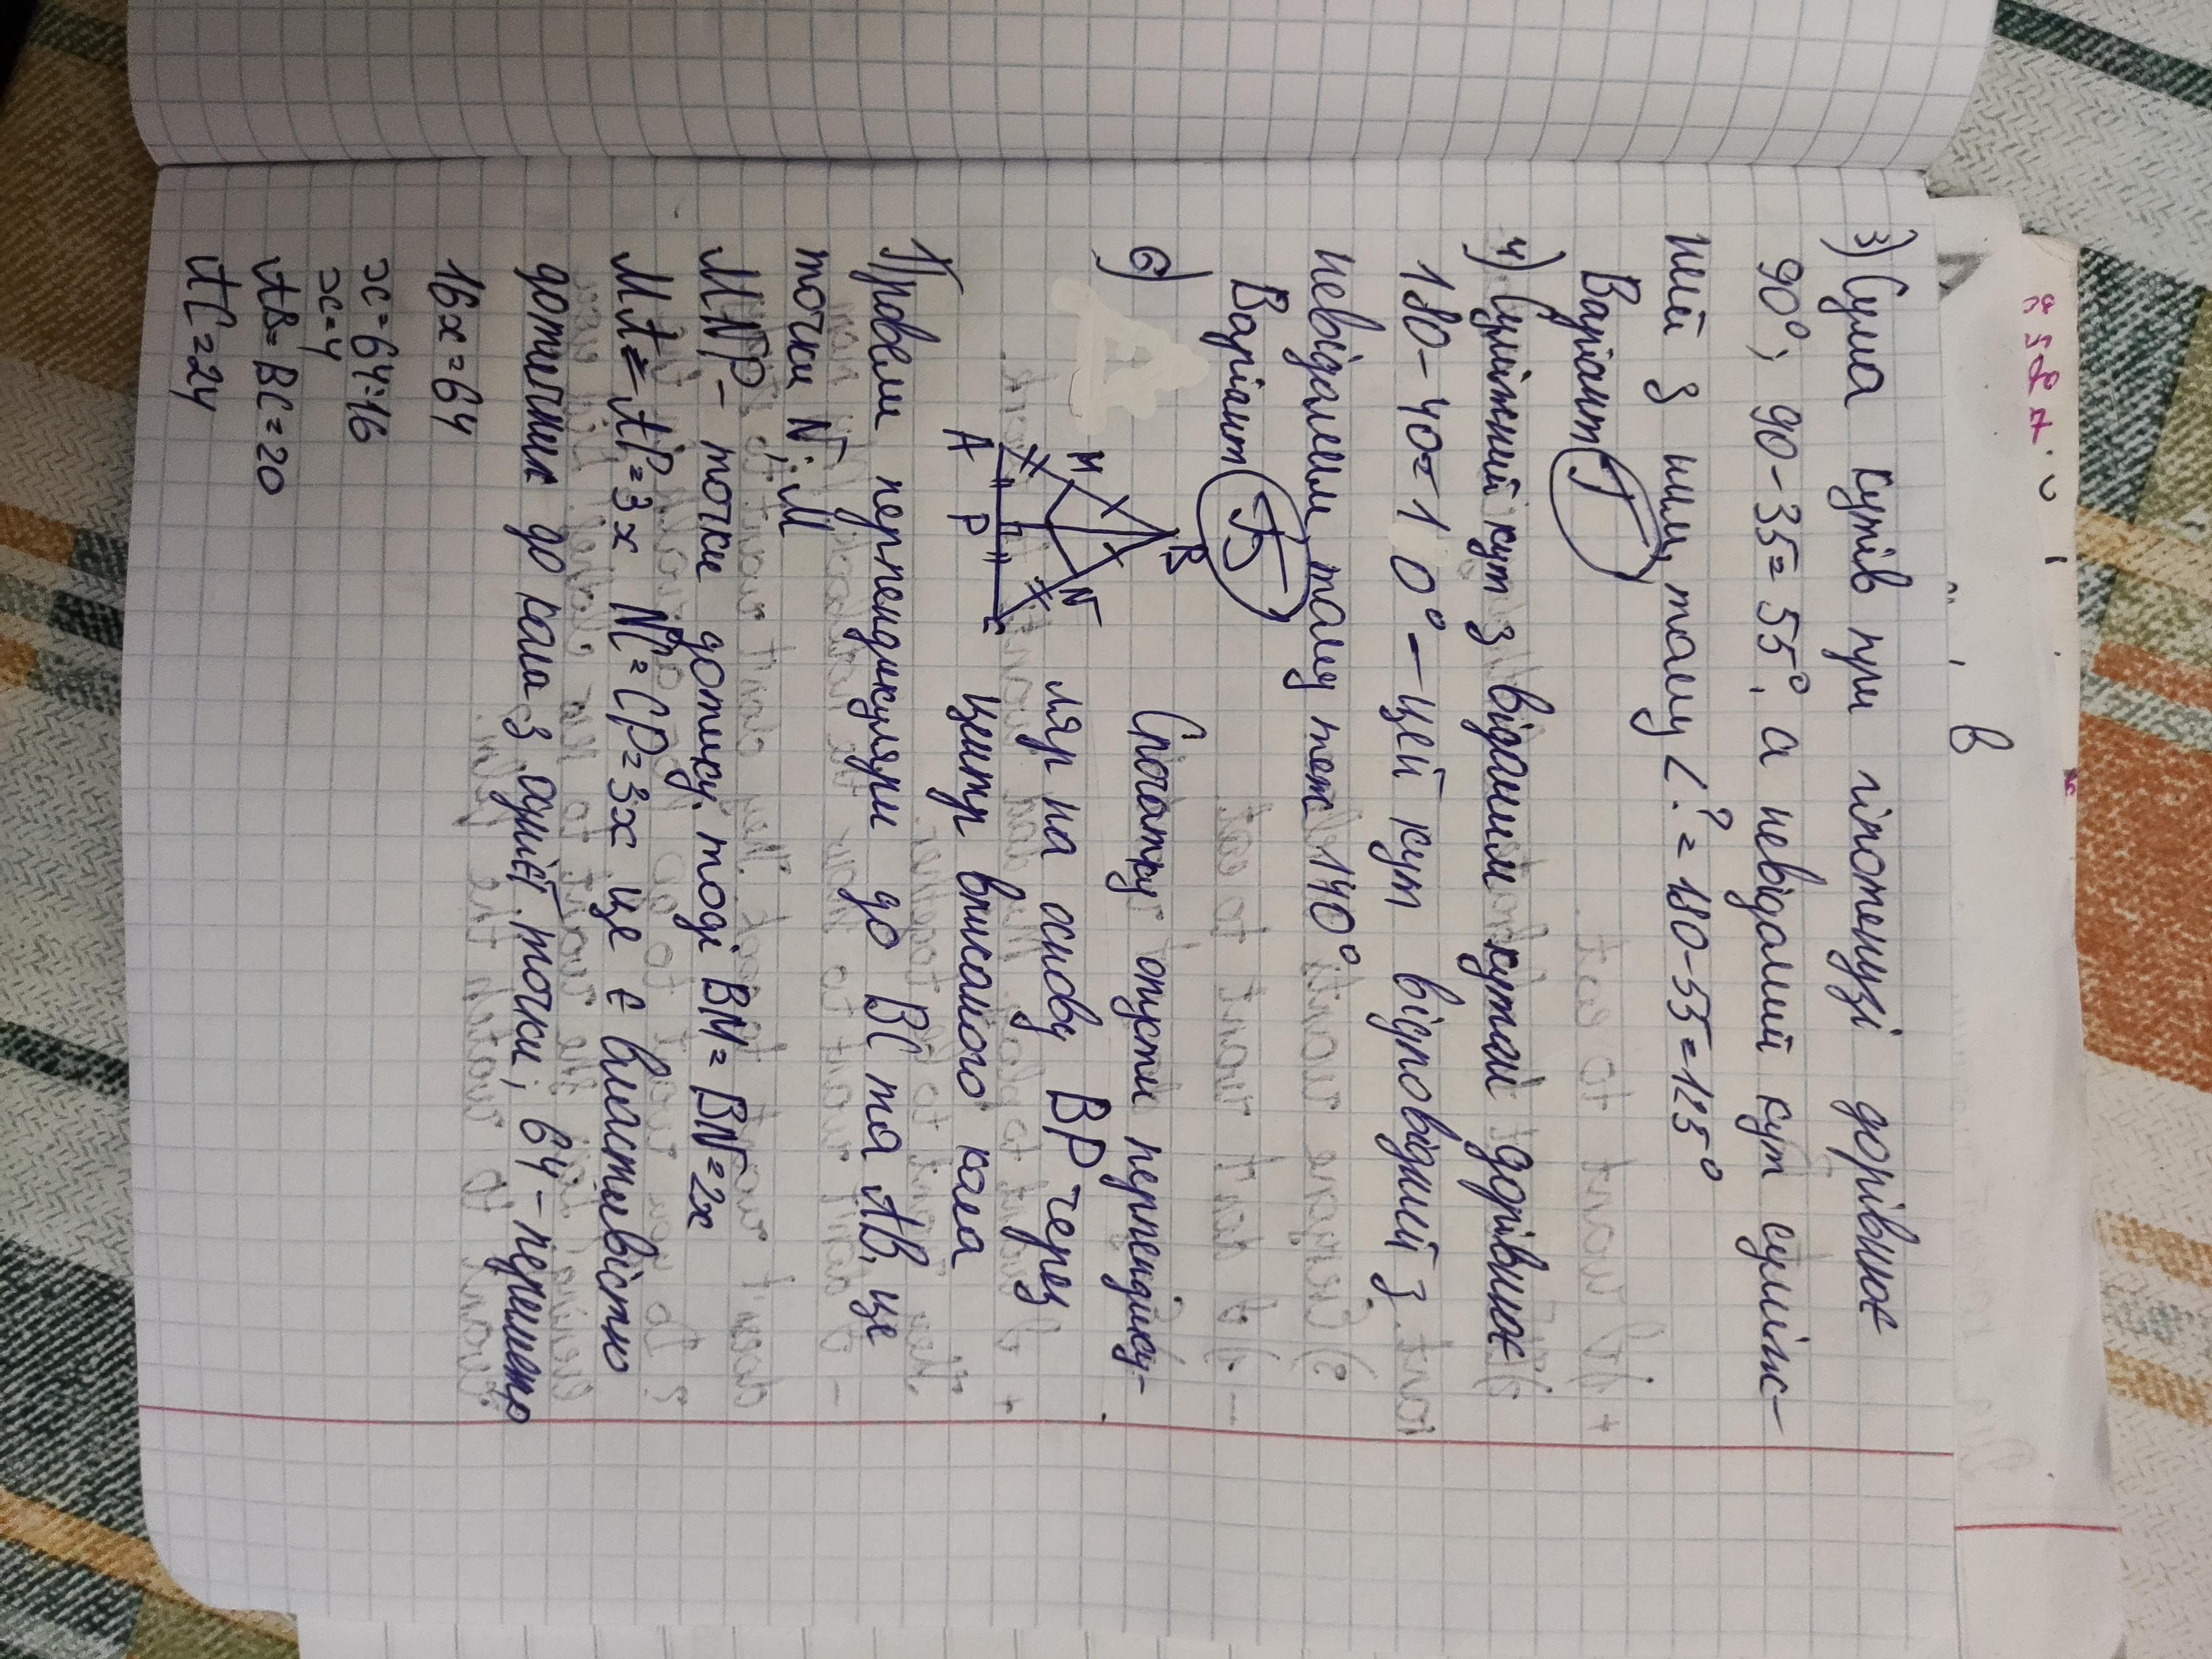 3) Сума кутів при гіпотенузі дорівнює
90°; 90-35=55°, а невідомий кут суміж-
ний з ним, тому ∠?=180-55=125°
Варіант Г
4) Суміжний кут з відомим кутом дорівнює
180-40=1 0° - цей кут відповідний з
невідомим, тому теж 140°
Варіант Б
6) Спочатку опусти перпендику-
ляр на основу BP через
центр вписаного кола
B
M
N
A
P
C
Провели перпендикуляри до BC та AB, це
точки N і M
MNP - точки дотику, тоді BM=BN=2x
MA=AP=3x NC=CP=3x це є властивістю
дотичних до кола з однієї точки; 64 - периметр
16x=64
x=64:16
x=4
AB=BC=20
AC=24